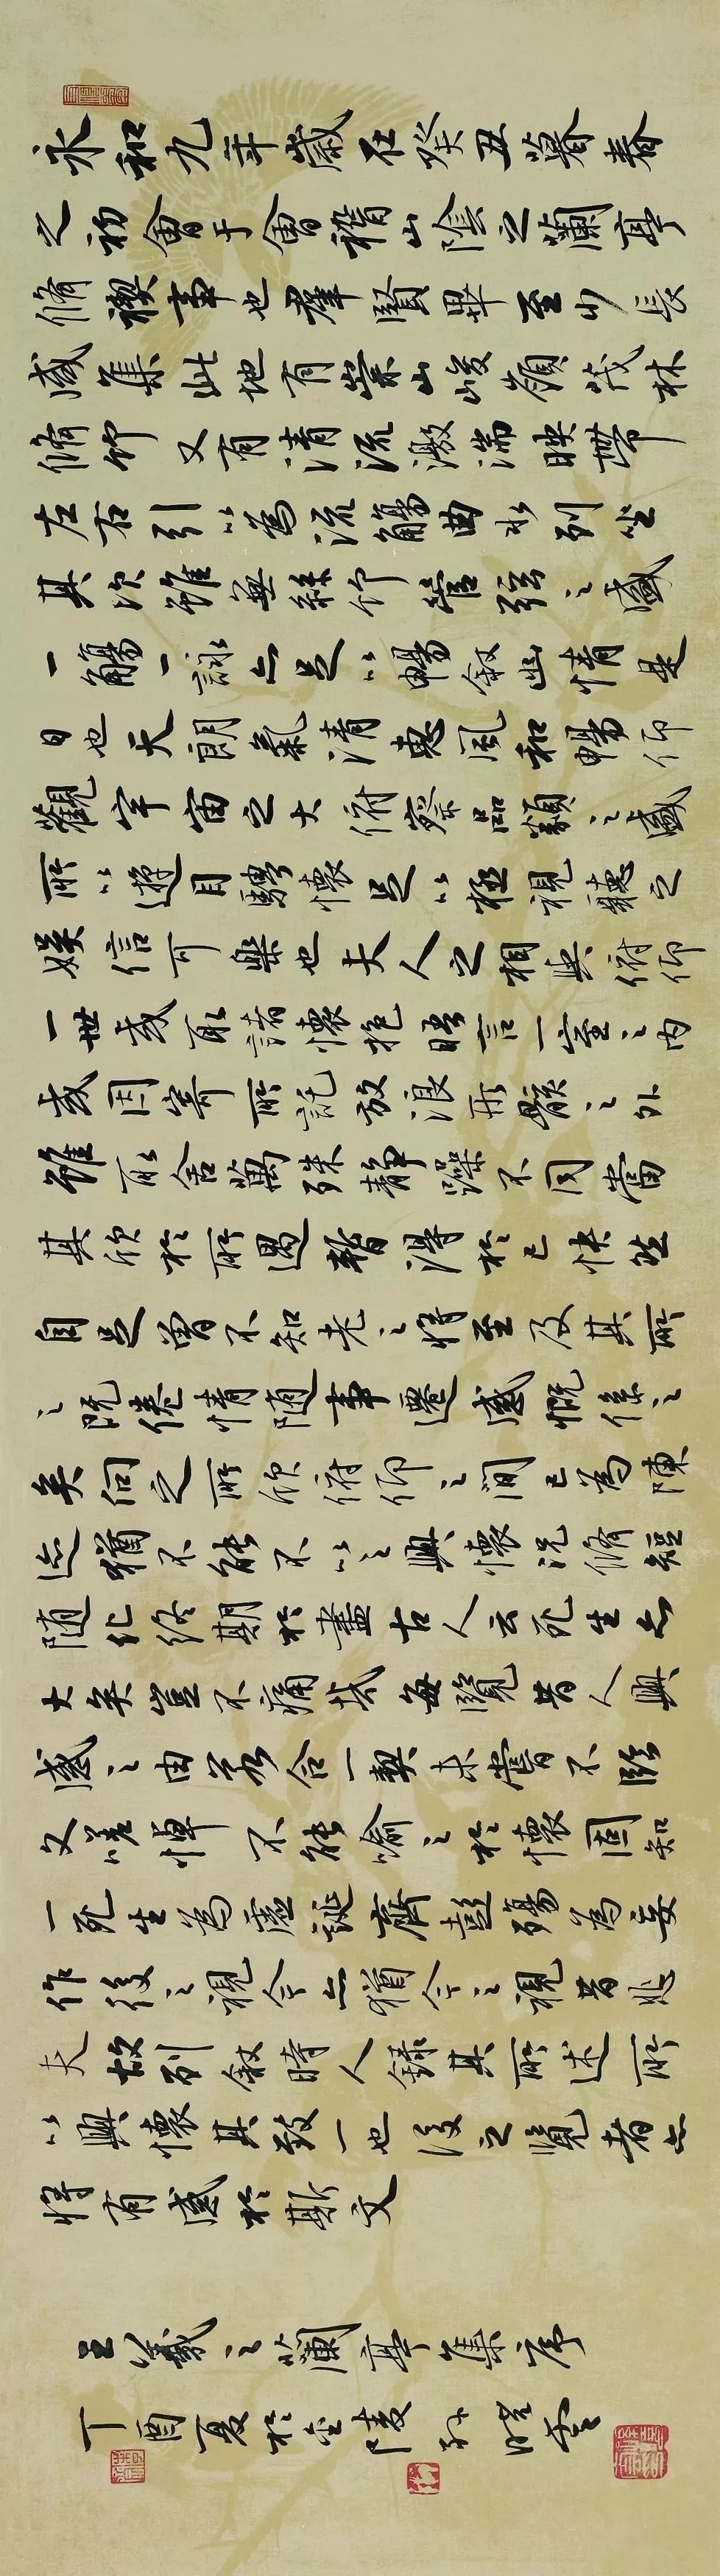 永和九年歲在癸丑暮春
之初會于會稽山陰之蘭亭
脩禊事也群賢畢至少長
咸集此地有崇山峻嶺茂林
脩竹又有清流激湍映帶
左右引以為流觴曲水列坐
其次雖無絲竹管弦之盛
一觴一詠亦足以暢敘幽情是
日也天朗氣清惠風和暢仰
觀宇宙之大俯察品類之盛
所以遊目騁懷足以極視聽之
娛信可樂也夫人之相與俯仰
一世或取諸懷抱晤言一室之內
或因寄所託放浪形骸之外
雖取舍萬殊靜躁不同當
其欣於所遇暫得於己快然
自足曾不知老之將至及其所
之既倦情随事遷感慨係之
矣向之所欣俯仰之間已為陳
迹猶不能不以之興懷況脩短
随化終期於盡古人云死生亦
大矣豈不痛哉每覽昔人興
感之由若合一契未嘗不臨
文嗟悼不能喻之於懷固知
一死生為虛誕齊彭殤為妄
作後之視今亦猶今之視昔悲
夫故列敘時人錄其所述所
以興懷其致一也後之覽者亦
將有感於斯文
王羲之蘭亭集序
丁酉夏於金陵孫曉雲